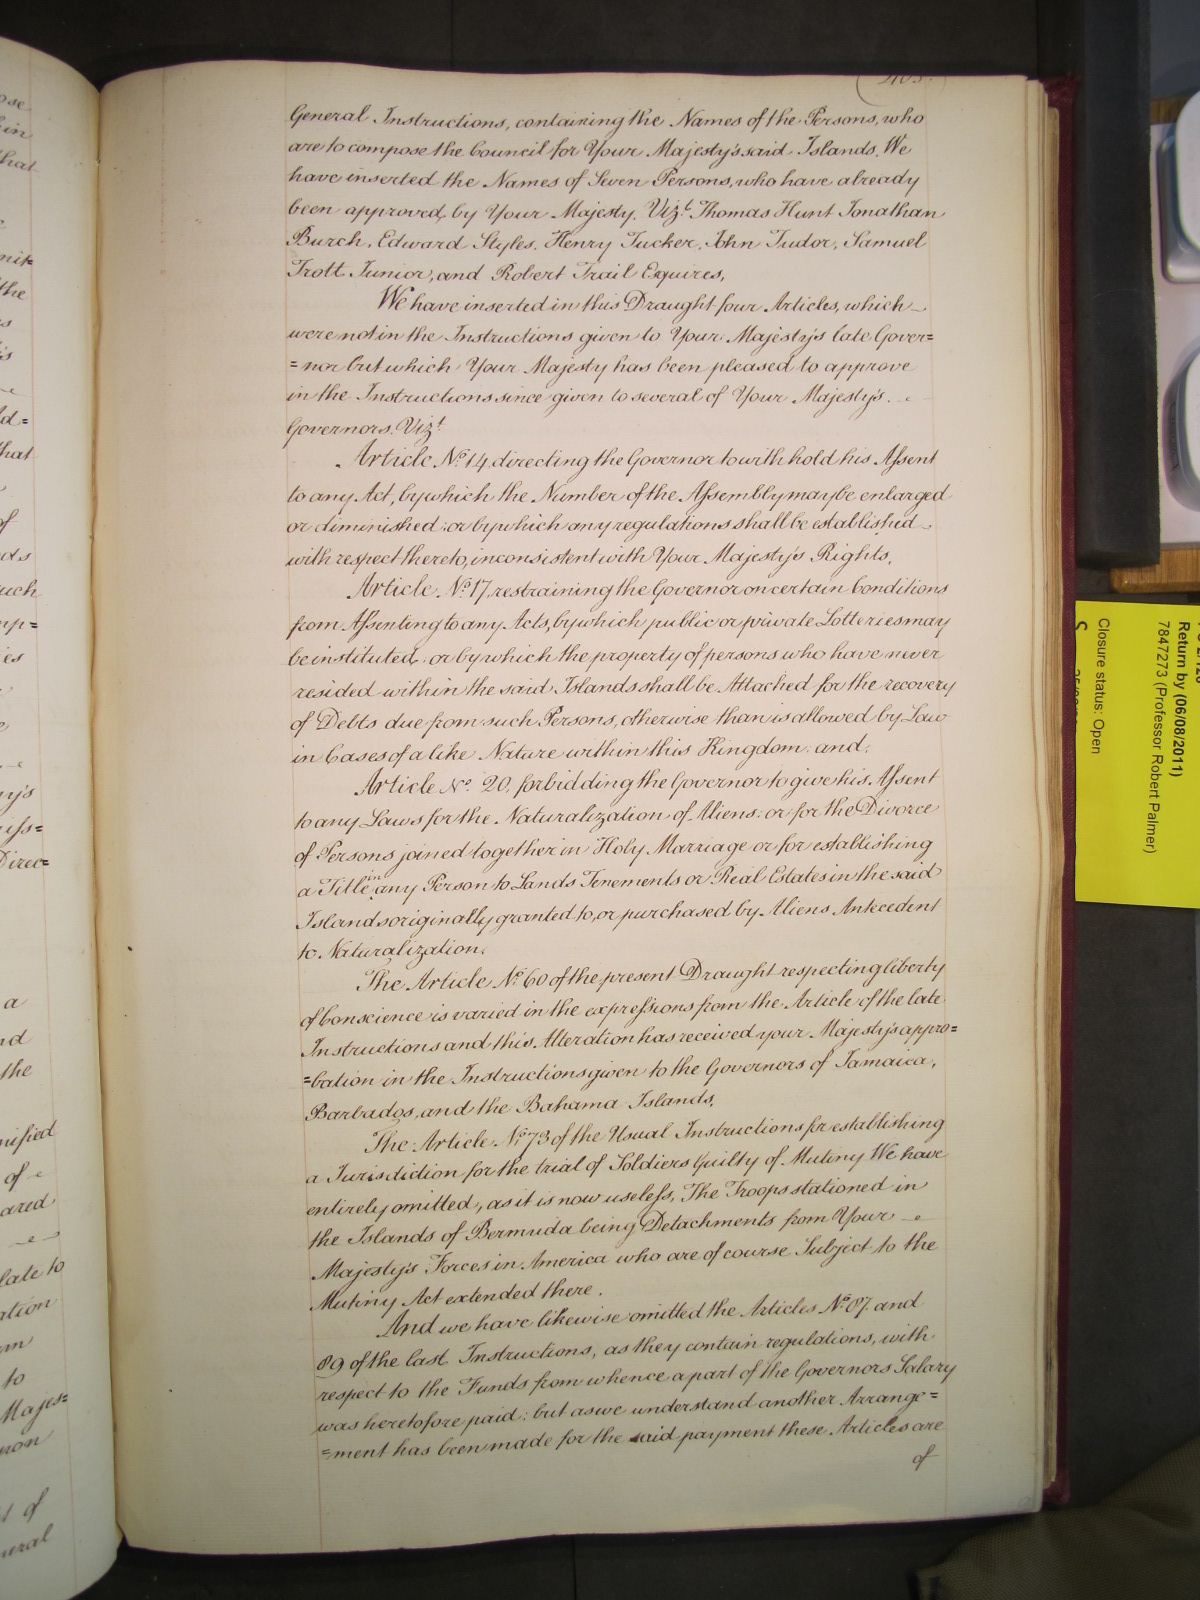 General Instructions, containing the Names of the Persons, who
are to compose the Council for Your Majesty's said Islands, We
have inserted the Names of Seven Persons, who have already
been approved by Your Majesty, Vizt. Thomas Hunt Jonathan
Burch, Edward Styles, Henry Tucker, John Tudor, Samuel
Trott Junior, and Robert Trail Esquires,
We have inserted in this Draught four Articles, which
were not in the Instructions given to Your Majesty's late Gover=
=nor but which Your Majesty has been pleased to approve
in the Instructions since given to several of Your Majesty's
Governors, Vizt
Article No. 14, directing the Governor to with hold his Assent
to any Act, by which the Number of the Assembly may be enlarged
or diminished; or by which any regulations shall be established
with respect thereto, inconsistent with Your Majesty's Rights,
Article No. 17, restraining the Governor on certain Conditions
from Assenting to any Acts, by which public or private Lotteries may
be instituted, or by which the property of persons who have never
resided within the said Islands shall be Attached for the recovery
of Debts due from such Persons, otherwise than is allowed by Law
in Cases of a like Nature within this Kingdom, and,
Article No. 20, forbidding the Governor to give his Assent
to any Laws for the Naturalization of Aliens; or for the Divorce
of Persons joined together in Holy Marriage or for establishing
a Title in any Person to Lands Tenements or Real Estates in the said
Islands originally granted to, or purchased by Aliens Antecedent
to Naturalization.
The Article No. 60 of the present Draught respecting liberty
of Conscience is varied in the expressions from the Article of the late
Instructions and this Alteration has received your Majesty's appro=
=bation in the Instructions given to the Governors of Jamaica,
Barbados, and the Bahama Islands.
The Article No. 73 of the Usual Instructions for establishing
a Jurisdiction for the trial of Soldiers Guilty of Mutiny We have
entirely omitted, as it is now useless, The Troops stationed in
the Islands of Bermuda being Detachments from Your
Majesty's Forces in America who are of course Subject to the
Mutiny Act extended there.
And we have likewise omitted the Articles No. 87 and
89 of the last Instructions, as they contain regulations, with
respect to the Funds from whence a part of the Governors Salary
was heretofore paid; but as we understand another Arrange=
=ment has been made for the said payment these Articles are
of
Return by (06/08/2011)
7847273 (Professor Robert Palmer)
Closure status: Open